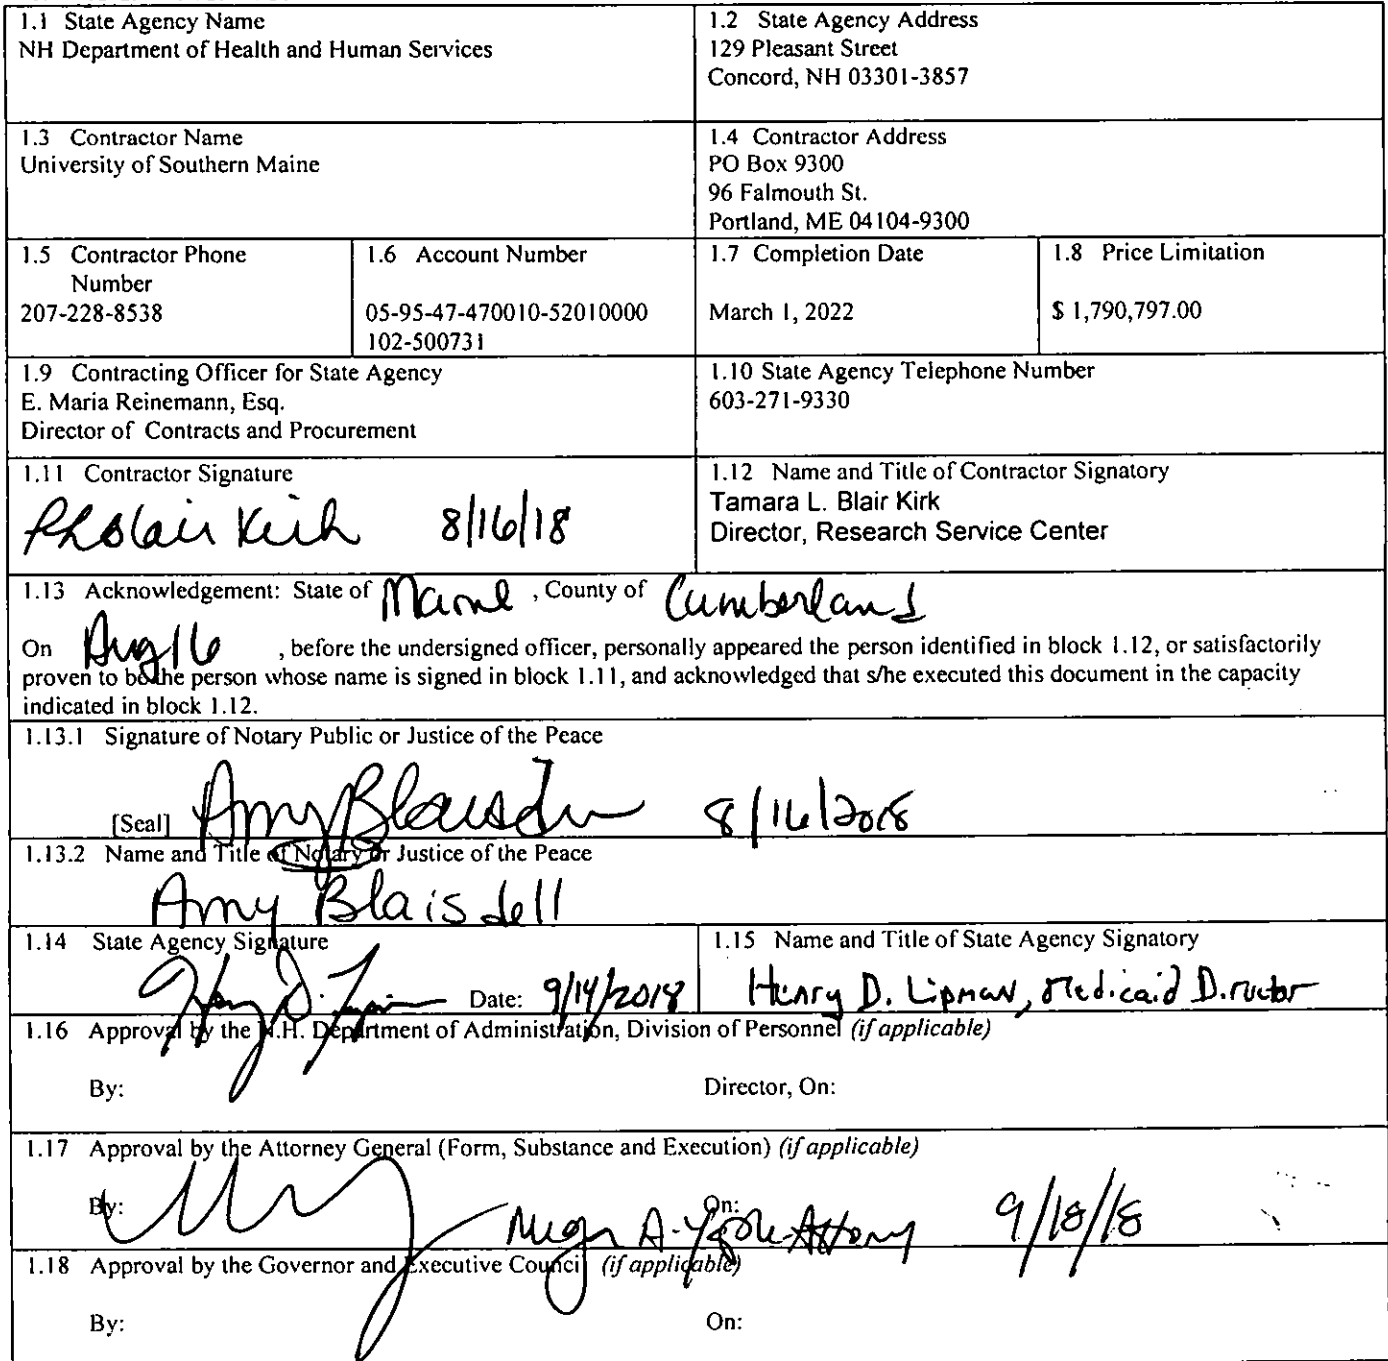 1.1 State Agency Name
NH Department of Health and Human Services
1.2 State Agency Address
129 Pleasant Street
Concord, NH 03301-3857
1.3 Contractor Name
University of Southern Maine
1.4 Contractor Address
PO Box 9300
96 Falmouth St.
Portland, ME 04104-9300
1.5 Contractor Phone
Number
207-228-8538
1.6 Account Number
05-95-47-470010-52010000
102-500731
1.7 Completion Date
March 1, 2022
1.8 Price Limitation
$ 1,790,797.00
1.9 Contracting Officer for State Agency
E. Maria Reinemann, Esq.
Director of Contracts and Procurement
1.10 State Agency Telephone Number
603-271-9330
1.11 Contractor Signature
Blair Kirk 8/16/18
1.12 Name and Title of Contractor Signatory
Tamara L. Blair Kirk
Director, Research Service Center
1.13 Acknowledgement: State of Maine , County of Cumberland
On Aug 16 , before the undersigned officer, personally appeared the person identified in block 1.12, or satisfactorily
proven to be the person whose name is signed in block 1.11, and acknowledged that s/he executed this document in the capacity
indicated in block 1.12.
1.13.1 Signature of Notary Public or Justice of the Peace
[Seal] Amy Blaisdell 8/16/2018
1.13.2 Name and Title of Notary or Justice of the Peace
Amy Blaisdell
1.14 State Agency Signature
Date: 9/14/2018
1.15 Name and Title of State Agency Signatory
Henry D. Lipman, Medicaid Director
1.16 Approval by the N.H. Department of Administration, Division of Personnel (if applicable)
By: Director, On:
1.17 Approval by the Attorney General (Form, Substance and Execution) (if applicable)
By: On: 9/18/18
1.18 Approval by the Governor and Executive Council (if applicable)
By: On: